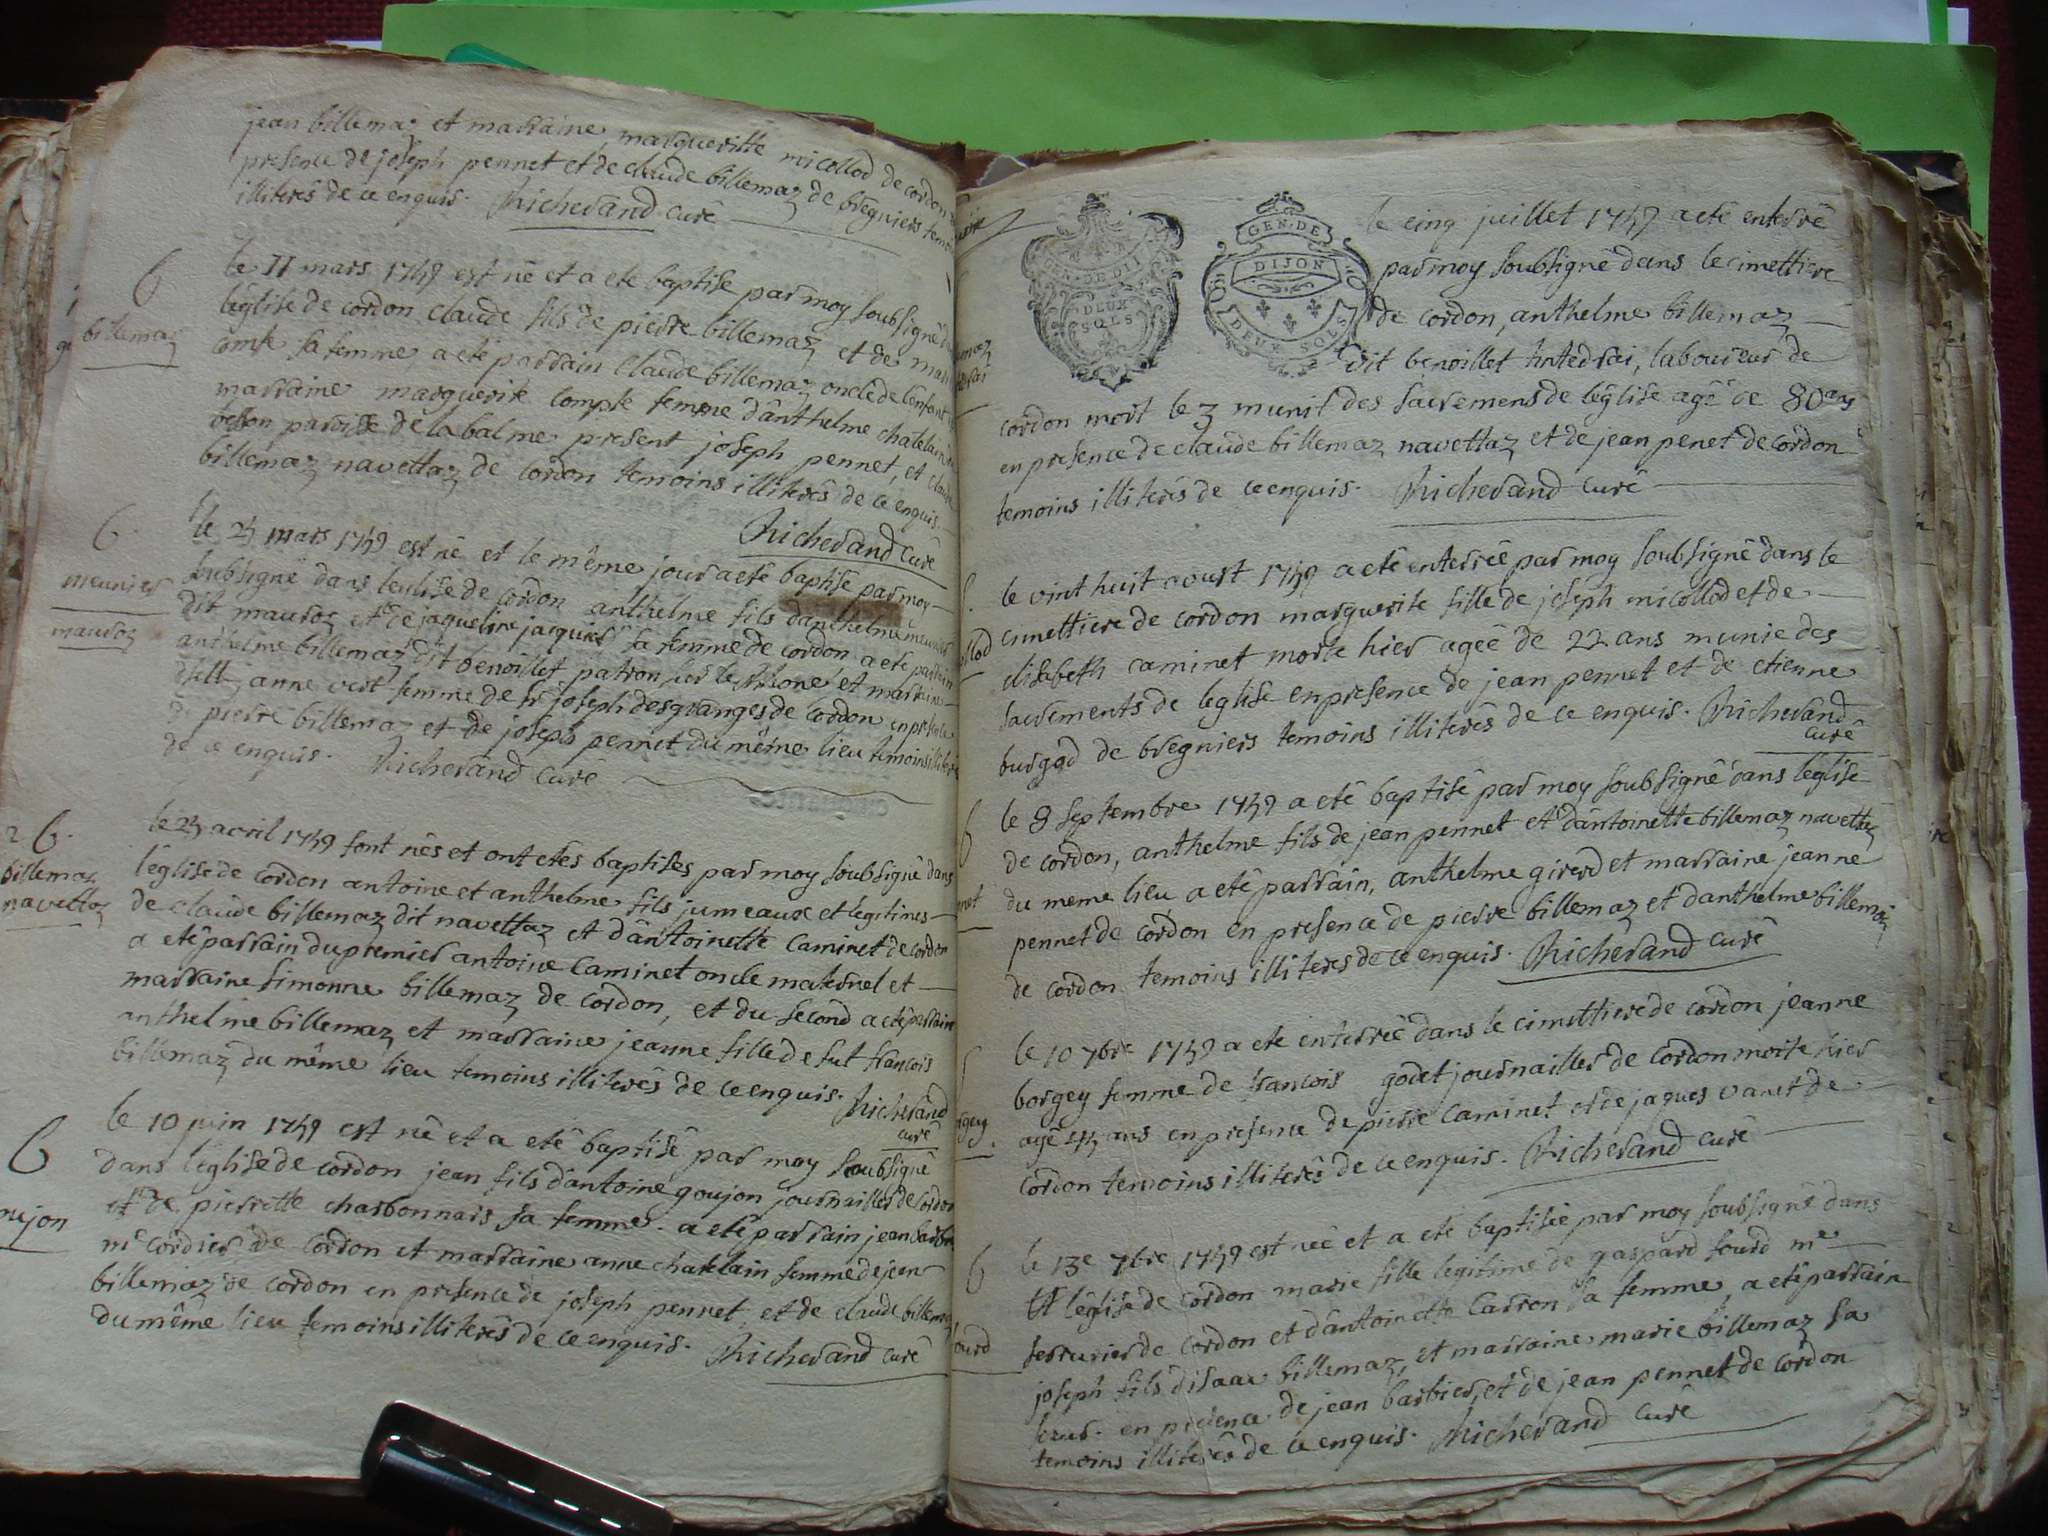 jean billemaz et marraine margueritte micollod de cordon
presence de joseph pennet et de claude billemaz de bregniers temoins
illiterés de ce enquis. Richerand curé
6
billemaz
le 11 mars 1749 est né et a eté baptisé par moy soubsigné
l'église de cordon claude fils de pierre billemaz et de
comte sa femme a eté parrain claude billemaz oncle de l'enfant
marraine marguerite compte femme d'anthelme chatelain
bellon paroisse de la balme present joseph pennet, et claude
billemaz navettaz de cordon temoins illiterés de ce enquis.
Richerand curé
6.
meunier
mauroz
le 23 mars 1749 est né et le même jour a eté baptisé par moy
soubsigné dans leglise de cordon anthelme fils danthelme meunier
dit mauroz et de jaqueline jacquier sa femme de cordon a eté parrain
anthelme billemaz dit benoillet patron sur le Rhone et marraine
anne vert femme de sr joseph desgranges de cordon en presence
de pierre billemaz et de joseph pennet du même lieu temoins illiterés
de ce enquis. Richerand curé
2 6.
billemaz
navettaz
le 23 avril 1749 sont nés et ont etés baptisés par moy soubsigné dans
l'église de cordon antoine et anthelme fils jumeaux et legitimes
de claude billemaz dit navettaz et d'antoinette caminet de cordon
a eté parrain du premier antoine caminet oncle maternel et
marraine simonne billemaz de cordon, et du second a eté parrain
anthelme billemaz et marraine jeanne fille de fut francois
billemaz du même lieu temoins illiterés de ce enquis. Richerand
curé
6
oujon
le 10 juin 1749 est né et a eté baptisé par moy soubsigné
dans l'église de cordon jean fils d'antoine goujon journaillier de cordon
et de pierrette charbonnais sa femme. a eté parrain jean barbier
me cordier de cordon et marraine anne chatelain femme de jean
billemaz de cordon en presence de joseph pennet, et de claude billemaz
du même lieu temoins illiterés de ce enquis. Richerand curé
GEN. DE DIJ
DEUX
SOLS
GEN. DE
DIJON
DEUX SOLS
le cinq juillet 1749 a eté enterré
par moy soubsigné dans le cimettiere
de cordon, anthelme billemaz
dit benoillet laboureur de
cordon mort le 3 munit des sacremens de l'église agé de 80 ans
en presence de claude billemaz navettaz et de jean penet de cordon
temoins illiterés de ce enquis. Richerand curé
ollod
le vint huit aoust 1749 a eté enterrée par moy soubsigné dans le
cimettiere de cordon marguerite fille de joseph micollod et de
elisabeth caminet morte hier agée de 22 ans munie des
sacrements de leglise en presence de jean pennet et de etienne
burgod de bregniers temoins illiterés de ce enquis. Richerand
curé
6
net
le 8 septembre 1749 a eté baptisé par moy soubsigné dans l'église
de cordon, anthelme fils de jean pennet et d'antoinette billemaz navettaz
du meme lieu a eté parrain, anthelme girerd et marraine jeanne
pennet de cordon en presence de pierre billemaz et d'anthelme billemaz
de cordon temoins illiteres de ce enquis. Richerand curé
rgey
le 10 7bre 1749 a eté enterrée dans le cimettiere de cordon jeanne
borgey femme de francois godet journaillier de cordon morte hier
agé 45 ans en presence de pierre caminet et de jaques vanet de
cordon temoins illiterés de ce enquis. Richerand curé
6
ourd
le 13e 7bre 1749 est née et a eté baptisée par moy soubsigné dans
l'église de cordon marie fille legitime de gaspard sourd me
serrurier de cordon et d'antoinette carron sa femme, a eté parrain
joseph fils d'isaac billemaz, et marraine marie billemaz sa
en presence de jean barbier, et de jean pennet de cordon
temoins illiterés de ce enquis. Richerand curé